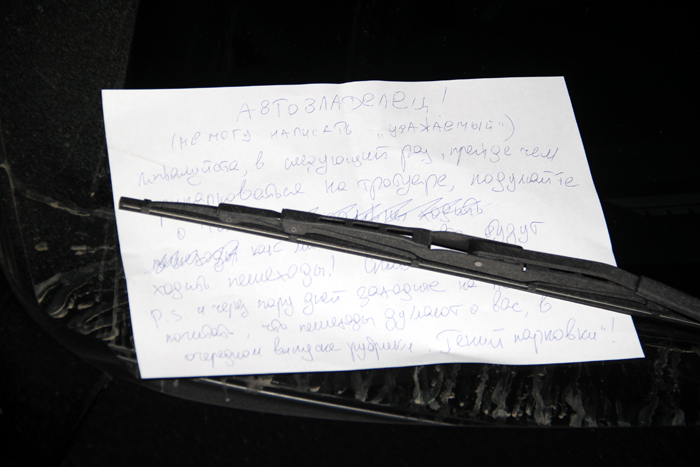 АВТОВЛАДЕЛЕЦ!
(НЕ МОГУ НАПИСАТЬ „УВАЖАЕМЫЙ")
пожалуйста, в следующий раз, прежде чем
парковаться на тротуаре, подумайте
о ходить
как будут
ходить пешеходы!
P.S и через пару дней заходите на
почитать, что пешеходы думают о вас, в
очередном выпуске рубрики „Гений парковки"!